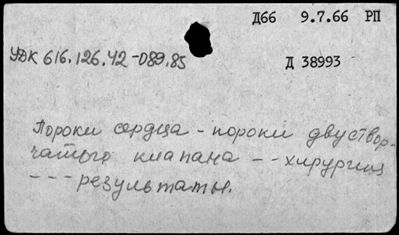 Д66 9.7.66 РП
УДК 616.126.42-089.85
Д 38993
Пороки сердца - пороки двуствор-
чатого клапана -- хирургия
--- результаты.